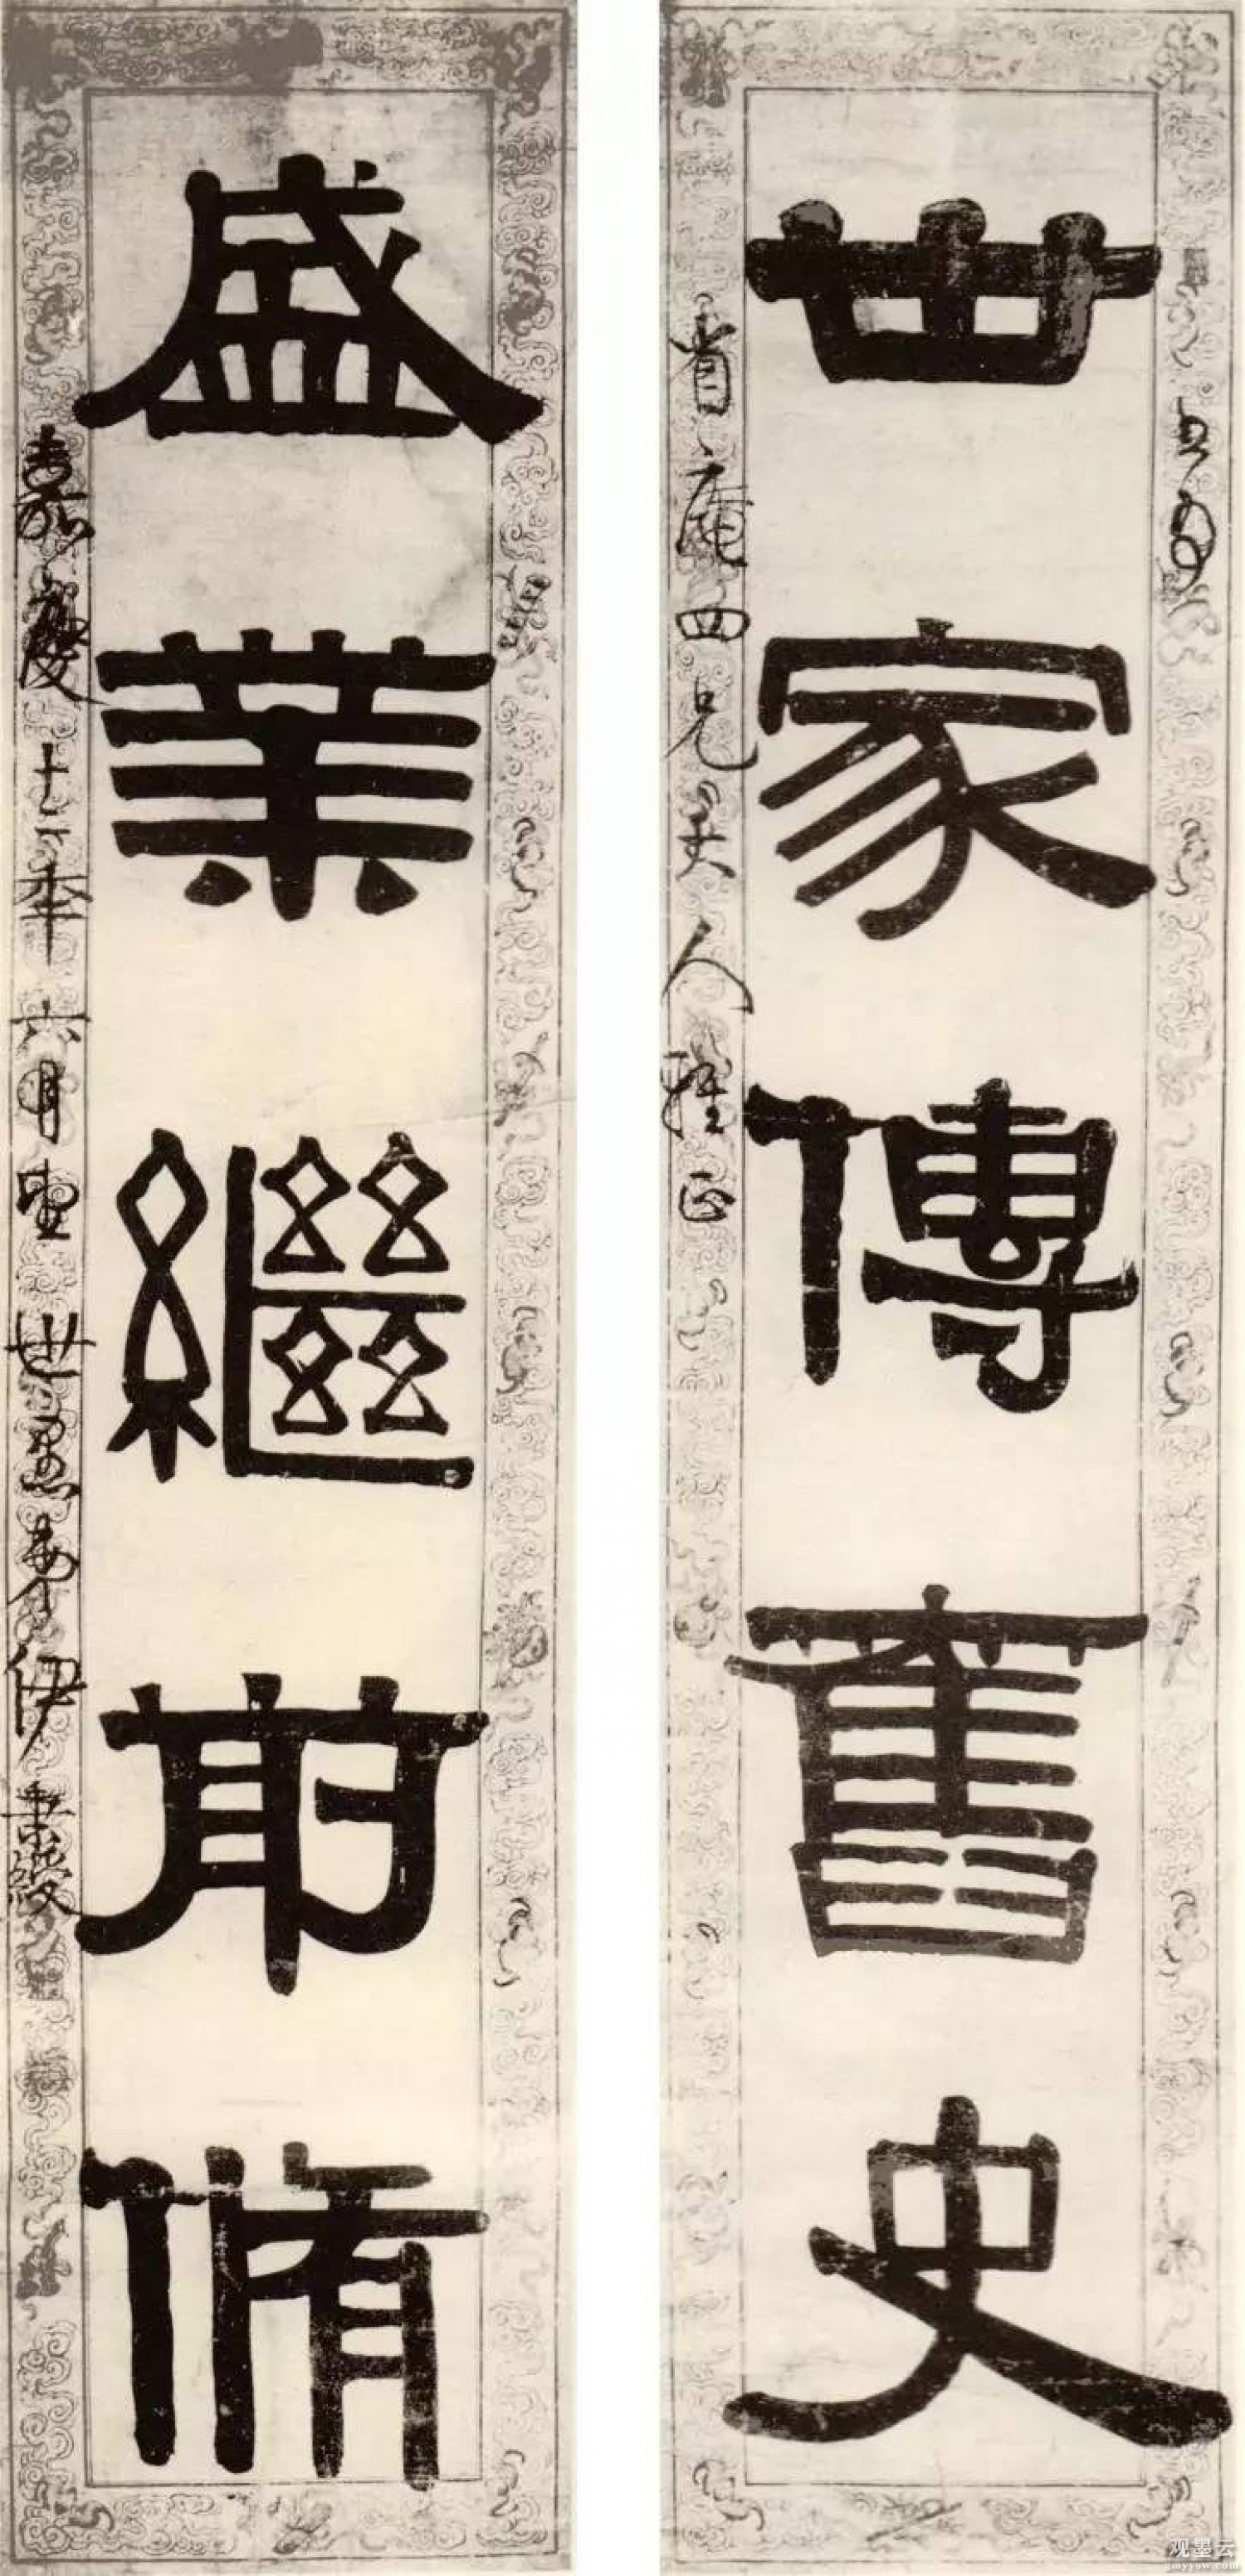 世家傳舊史
省庵四兄人雅正
盛業繼前脩
嘉慶十年六月望世愚弟伊秉綬
观墨云
gmyysw.com